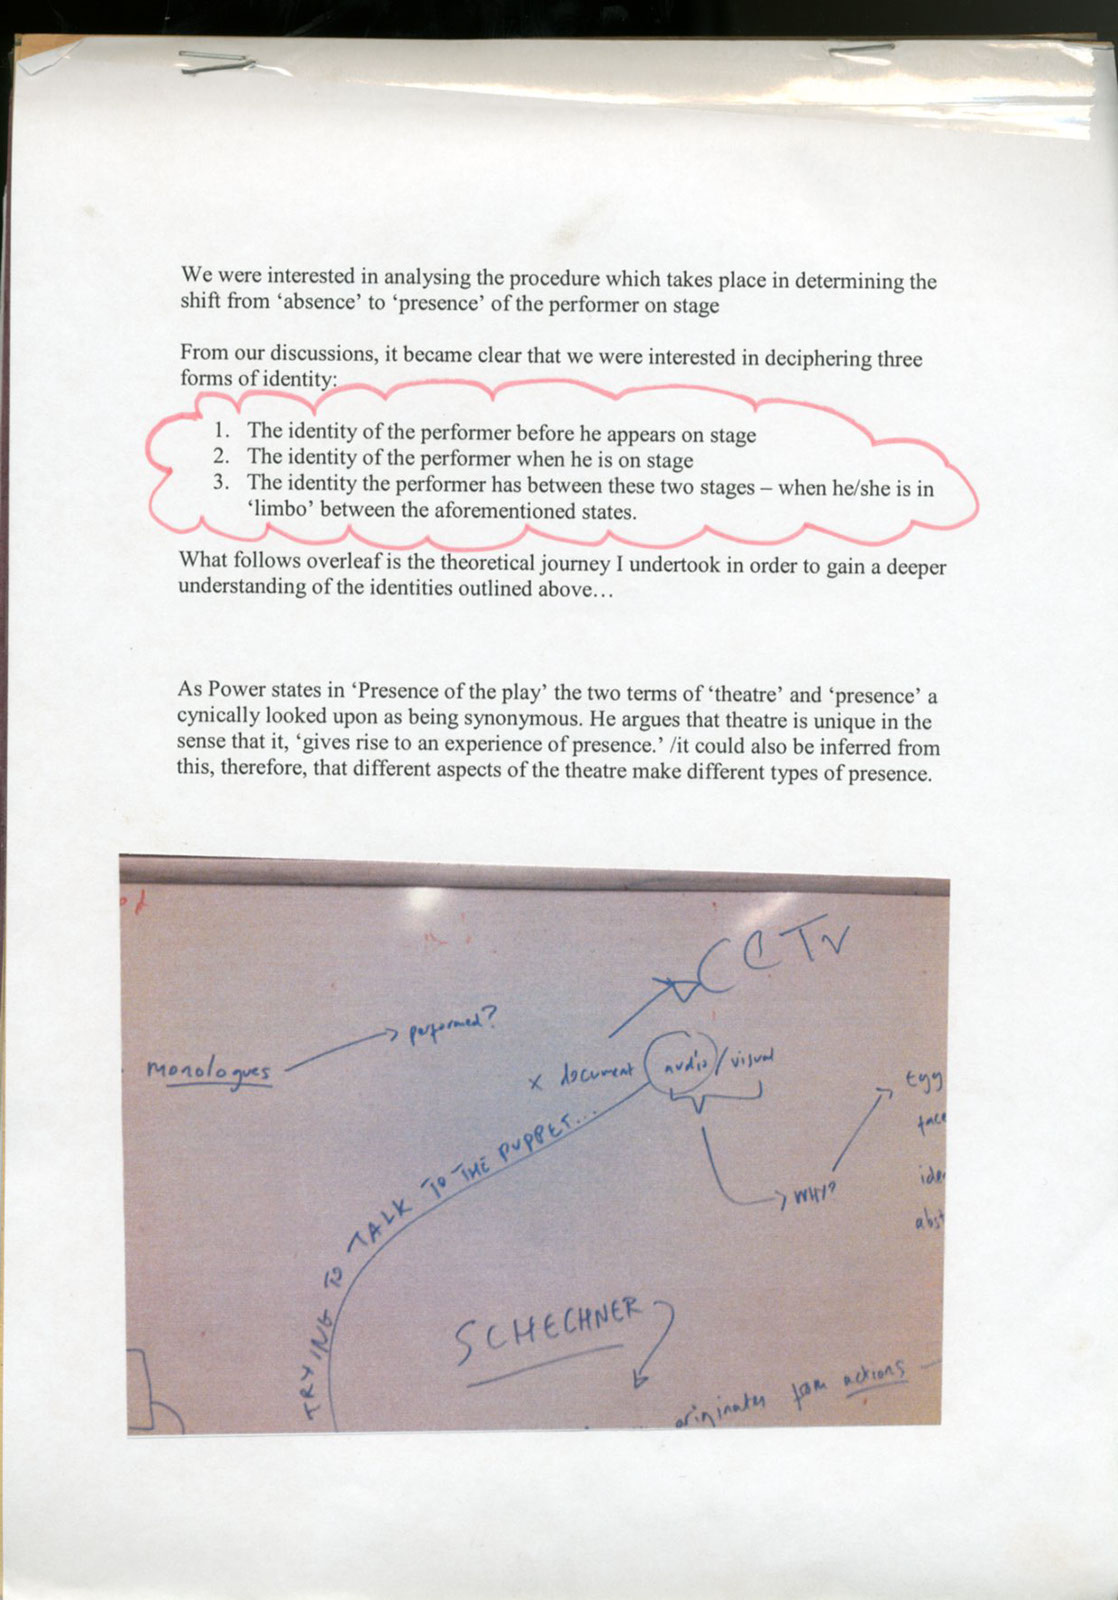 We were interested in analysing the procedure which takes place in determining the
shift from ‘absence’ to ‘presence’ of the performer on stage
From our discussions, it became clear that we were interested in deciphering three
forms of identity:
1. The identity of the performer before he appears on stage
2. The identity of the performer when he is on stage
3. The identity the performer has between these two stages – when he/she is in
‘limbo’ between the aforementioned states.
What follows overleaf is the theoretical journey I undertook in order to gain a deeper
understanding of the identities outlined above…
As Power states in ‘Presence of the play’ the two terms of ‘theatre’ and ‘presence’ a
cynically looked upon as being synonymous. He argues that theatre is unique in the
sense that it, ‘gives rise to an experience of presence.’ /it could also be inferred from
this, therefore, that different aspects of the theatre make different types of presence.
CCTV
performed?
monologues
x document audio/visual
Egg
face
WHY?
ide
abst
TRYING TO TALK TO THE PUPPET...
SCHECHNER
originates from actions